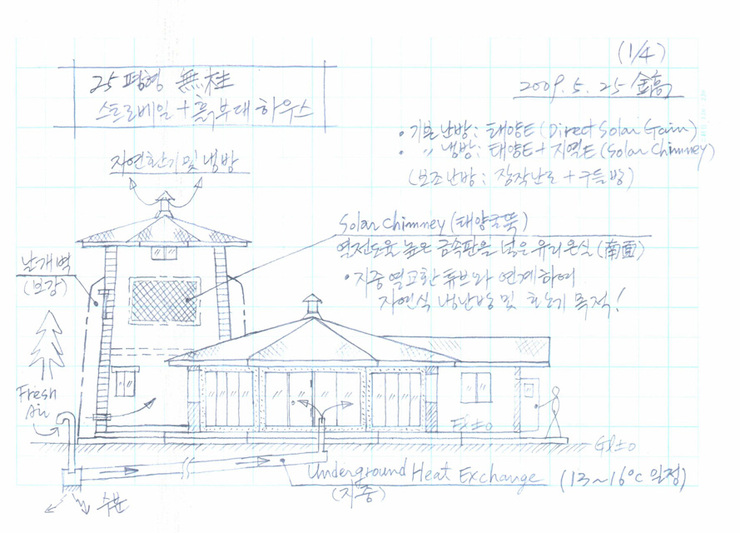 (1/4)
25평형 無柱
스트로베일 + 흙부대 하우스
2009. 5. 25
• 기본난방 : 태양E (Direct Solar Gain)
• 〃 냉방 : 태양E + 지열E (Solar Chimney)
(보조난방 : 장작난로 + 구들방)
자연환기 및 냉방
Solar Chimney (태양굴뚝)
열전도율 높은 금속판을 넣은 유리온실 (南面)
• 지중 열교환 튜브와 연계하여
자연식 냉난방 및 환기 목적!
날개벽
(보강)
Fresh
Air
FL±0
GL±0
Underground Heat Exchange (13~16°C 일정)
(지중)
수분